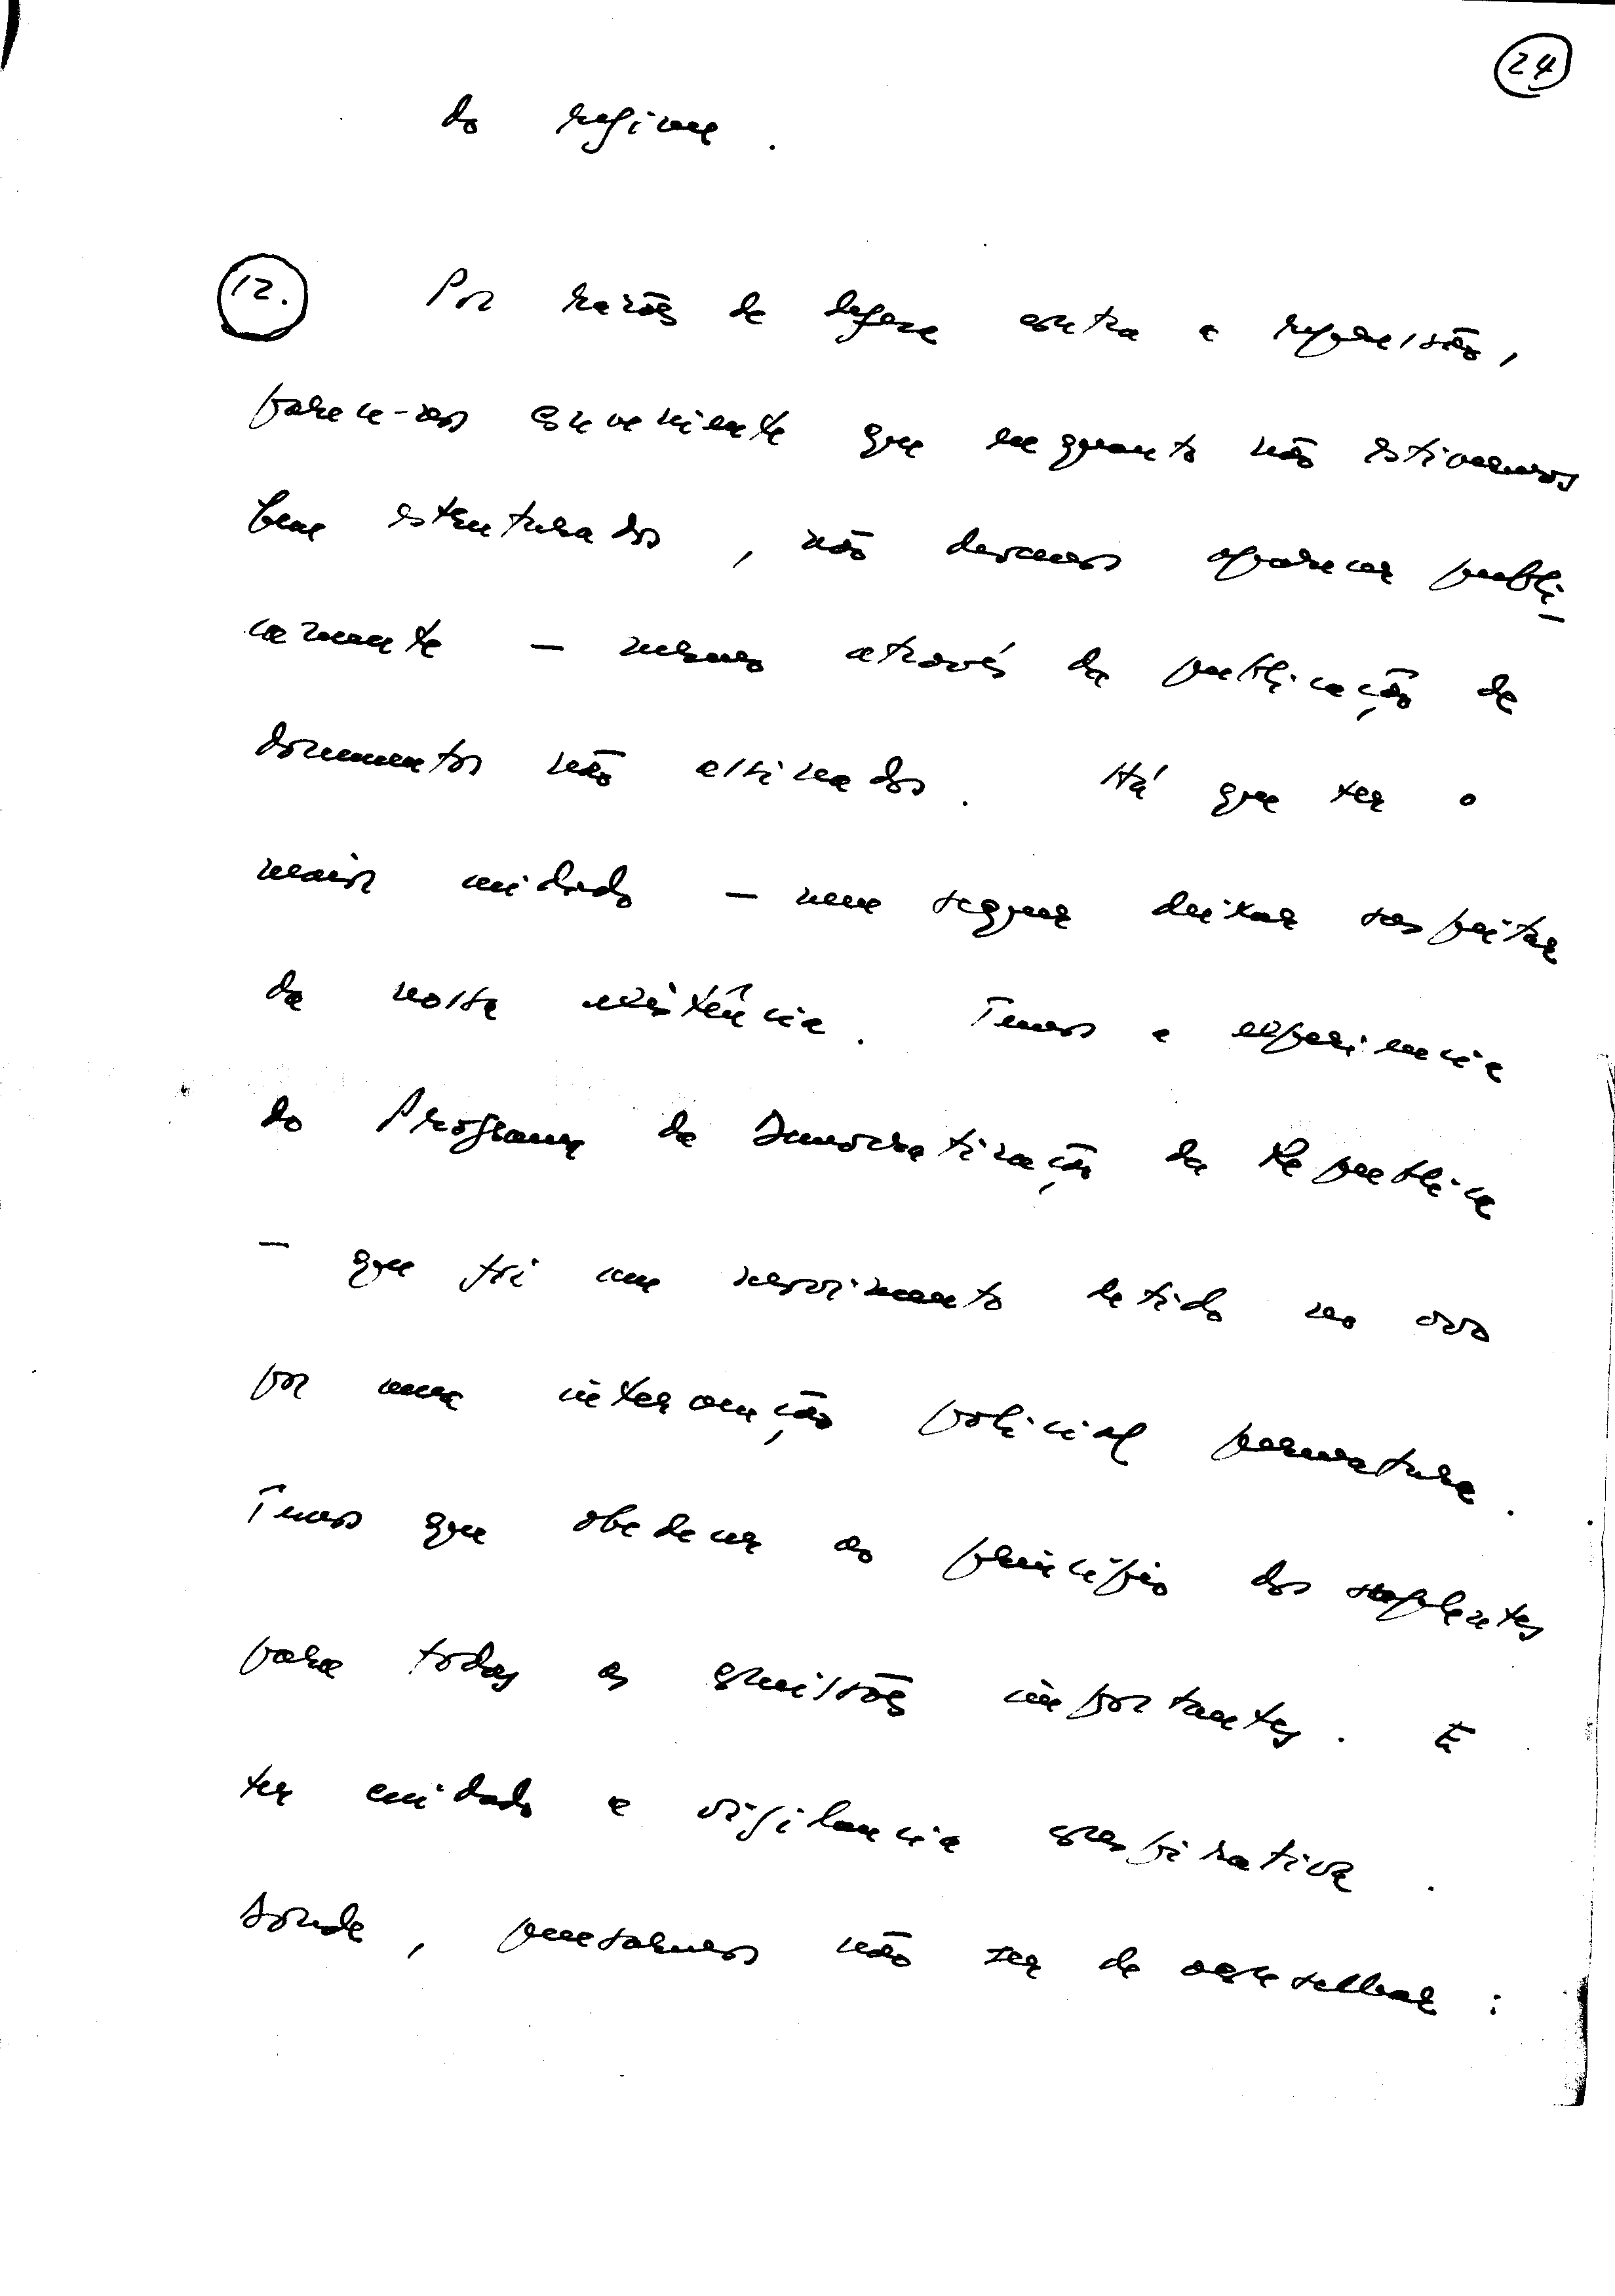 24
do regime.
12. Por razões de defesa contra a repressão,
parece-nos conveniente que enquanto não estivermos
bem estruturados, não devemos aparecer publi-
camente — mesmo através da publicação de
documentos não assinados. Há que ter o
maior cuidado — nem sequer deixar suspeitar
da nossa existência. Temos a experiencia
do Programa da Democratização da Republica
— que foi um movimento batido no ovo
por uma intervenção policial prematura.
Temos que obedecer ao princípio dos suplentes
para todas as comissões importantes. E
ter cuidado e vigilancia conspirativa.
Donde, pensarmos não ser de aconselhar: